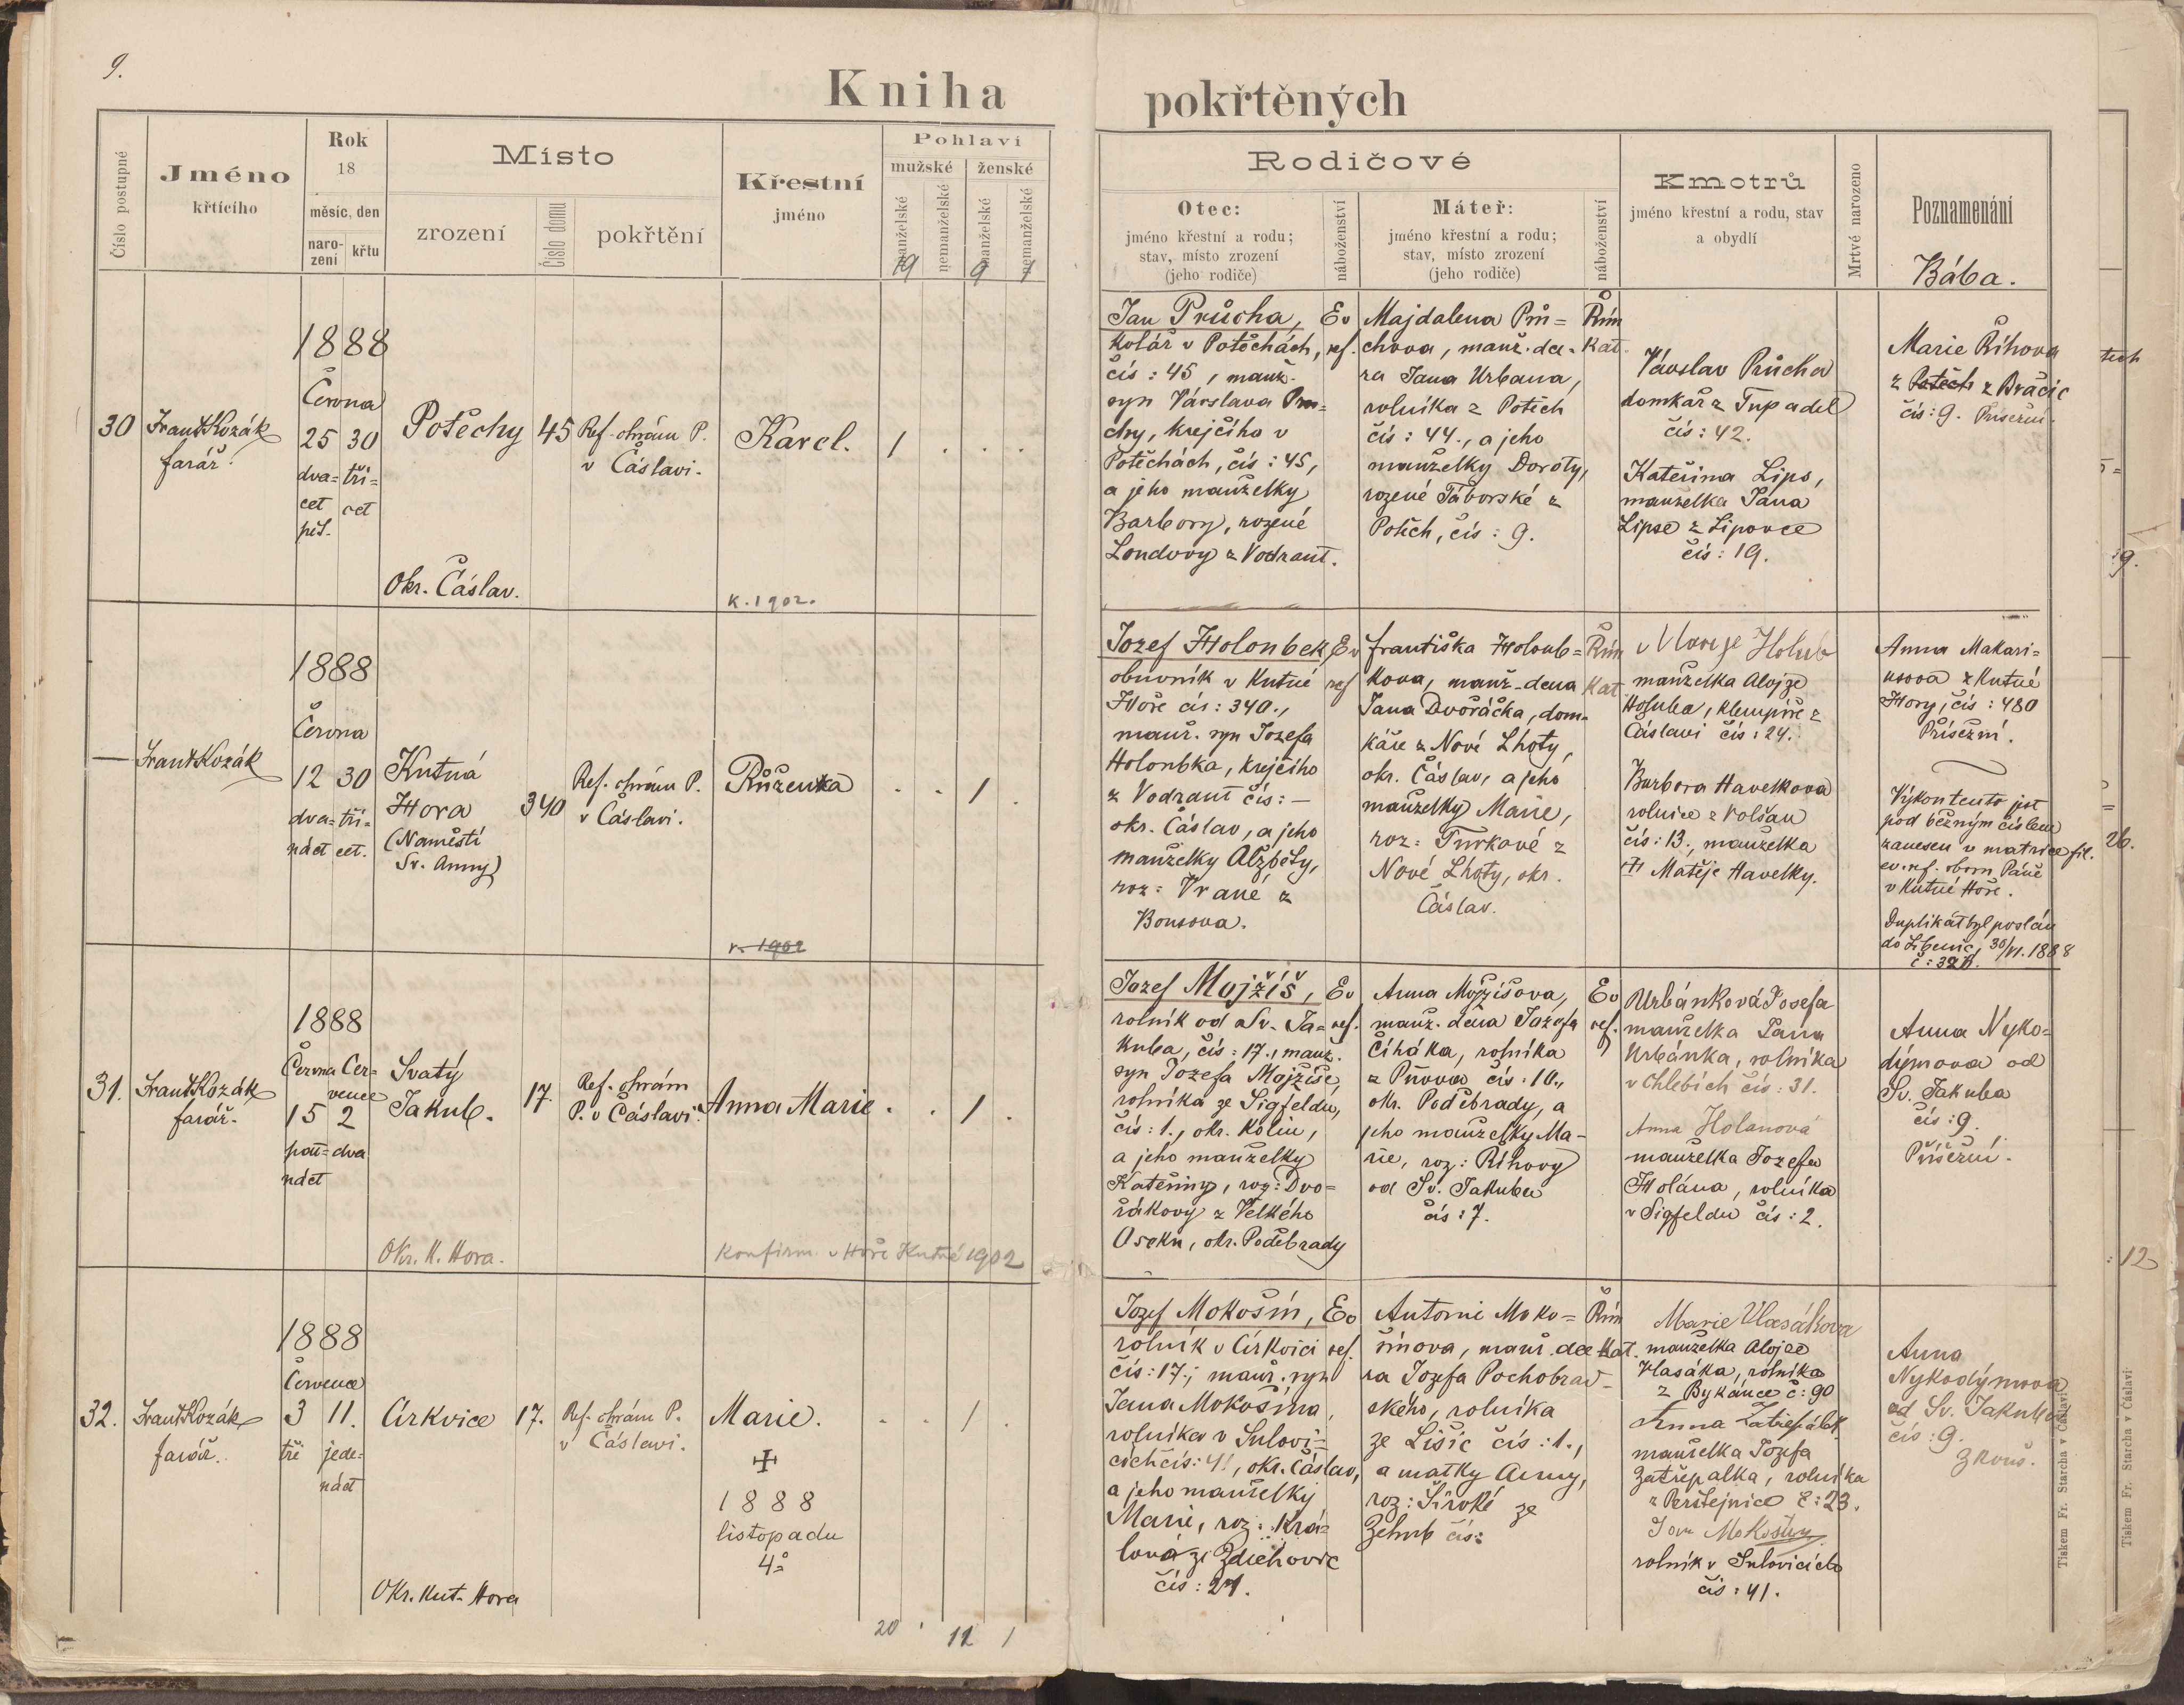 9.
Kniha pokřtěných
Číslo postupné
Jméno
křtícího
Rok
18
měsíc, den
naro-
zení
křtu
Místo
zrození
Číslo domu
pokřtění
Křestní
jméno
Pohlaví
mužské
ženské
manželské
nemanželské
manželské
nemanželské
19
9
1
Rodičové
Otec:
jméno křestní a rodu;
stav, místo zrození
(jeho rodiče)
náboženství
Máteř:
jméno křestní a rodu;
stav, místo zrození
(jeho rodiče)
náboženství
Kmotrů
jméno křestní a rodu, stav
a obydlí
Mrtvé narozeno
Poznamenání
Bába.
30
Frant Kozák
farář.
1888
Června
25 30
dva= tři=
cet cet
pět.
Potěchy
45
Ref. chrám P.
v Čáslavi.
Karel.
1 . . .
Okr. Čáslav.
K. 1902.
Jan Průcha,
kolář v Potěchách,
čís: 45, manž.
syn Václava Prů=
chy, krejčího v
Potěchách, čís: 45,
a jeho manželky
Barbory, rozené
Londovy z Vodrant.
Ev
ref.
Majdalena Prů=
chova, manž. dce=
ra Jana Urbana,
rolníka z Potěch
čís: 44., a jeho
manželky Doroty,
rozené Táborské z
Potěch, čís: 9.
Řím
Kat.
Václav Průcha
domkář z Tupadel
čís: 42.
Kateřina Lips,
manželka Jana
Lipse z Lipovce
čís: 19.
Marie Říhova
z Potěch z Bračic
čís: 9. Přísežní.
—
Frant Kozák
1888
Června
12 30
dva= tři=
náct cet.
Kutná
Hora
(Naměstí
Sv. Anny)
340
Ref. chrám P.
v Čáslavi.
Růženka
. . 1 .
K. 1902
Jozef Holoubek,
obuvník v Kutné
Hoře čís: 340.,
manž. syn Jozefa
Holoubka, krejčího
z Vodrant čís: —
okr. Čáslav, a jeho
manželky Alžběty,
roz: Vrané z
Bousova.
Ev
ref
Františka Holoub=
kova, manž. dcera
Jana Dvořáčka, dom=
káře z Nové Lhoty,
okr. Čáslav, a jeho
manželky Marie,
roz: Turkové z
Nové Lhoty, okr.
Čáslav.
Řím
Kat
Marije Holub
manželka Alojze
Holuba, klempíře z
Čáslavi čís: 24.
Barbora Havelkova
rolnice z Volšan
čís: 13., manželka
Matěje Havelky.
Anna Makari=
usova z Kutné
Hory, čís: 480
Přísežní.
Výkon tento jest
pod běžným číslem
zanesen v matrice fil.
ev. ref. sboru Páně
v Kutné Hoře.
Duplikát byl poslán
do Libenic, 30/VI. 1888
31.
Frant Kozák
farář.
1888
Června Čer=
vence
15 2
pat= dva
náct
Svatý
Jakub.
17.
Ref. chrám
P. v Čáslavi.
Anna Marie
. . 1 .
Okr. K. Hora.
Konfirm. v Hoře Kutné 1902
Jozef Mojžíš,
rolník od Sv. Ja=
kuba, čís: 17., manž.
syn Jozefa Mojžíše,
rolníka ze Sigfeldu,
čís: 1., okr. Kolín,
a jeho manželky
Kateřiny, roz: Dvo=
řákovy z Velkého
Oseku, okr. Poděbrady
Ev
ref.
Anna Mojžíšova,
manž. dcera Jozefa
Čiháka, rolníka
z Pňova čís: 10.,
okr. Poděbrady, a
jeho manželky Ma-
rie, roz: Říhovy
od Sv. Jakuba
čís: 7.
Ev
ref.
Urbánková Josefa
manželka Jana
Urbánka, rolníka
v Chlebích čís: 31.
Anna Holanová
manželka Jozefa
Holána, rolníka
v Sigfeldu čís: 2.
Anna Nyko=
dýmova od
Sv. Jakuba
čís: 9.
Přísežní.
32.
Frant Kozák
farář.
1888
Července
3 11.
tři jede=
náct
Církvice
17.
Ref. chrám P.
v Čáslavi.
Marie.
1888
listopadu
4.
. . 1 .
Okr. Kut. Hora
Jozef Mokošín,
rolník v Církvici
čís: 17., manž. syn
Jana Mokošína,
rolníka v Sulovi=
cích čís: 41, okr. Čáslav,
a jeho manželky
Marie, roz: Krá=
lová ze Zdechovic
čís: 21.
Ev
ref.
Antonie Moko=
šínova, manž. dce=
ra Jozefa Pochobrad=
ského, rolníka
ze Lišic čís: 1.,
a matky Anny,
roz: Široké ze
Žehub čís:
Řím
Kat.
Marie Vlasákova
manželka Alojze
Vlasáka, rolníka
z Bykánce č: 90
Anna Zatřepálek
manželka Jozefa
Zatřepalka, rolníka
z Perštejnice č: 23.
Jan Mokošín
rolník v Sulovicích
čís: 41.
Anna
Nykodýmova
od Sv. Jakuba
čís: 9.
Zkouš.
20 1 11 1
Tiskem Fr. Starcha v Čáslavi
Tiskem Fr. Starcha v Čáslavi
těch
9.
26.
: 12